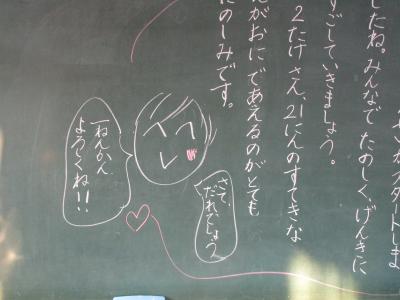 がスタートしま
したね。みんなで たのしく、げんきに
すごしていきましょう。
2たけ さん、21にんのすてきな
がおに であえるのが とても
のしみです。
さて、
だれでしょう。
一ねんかん
よろしくね!!